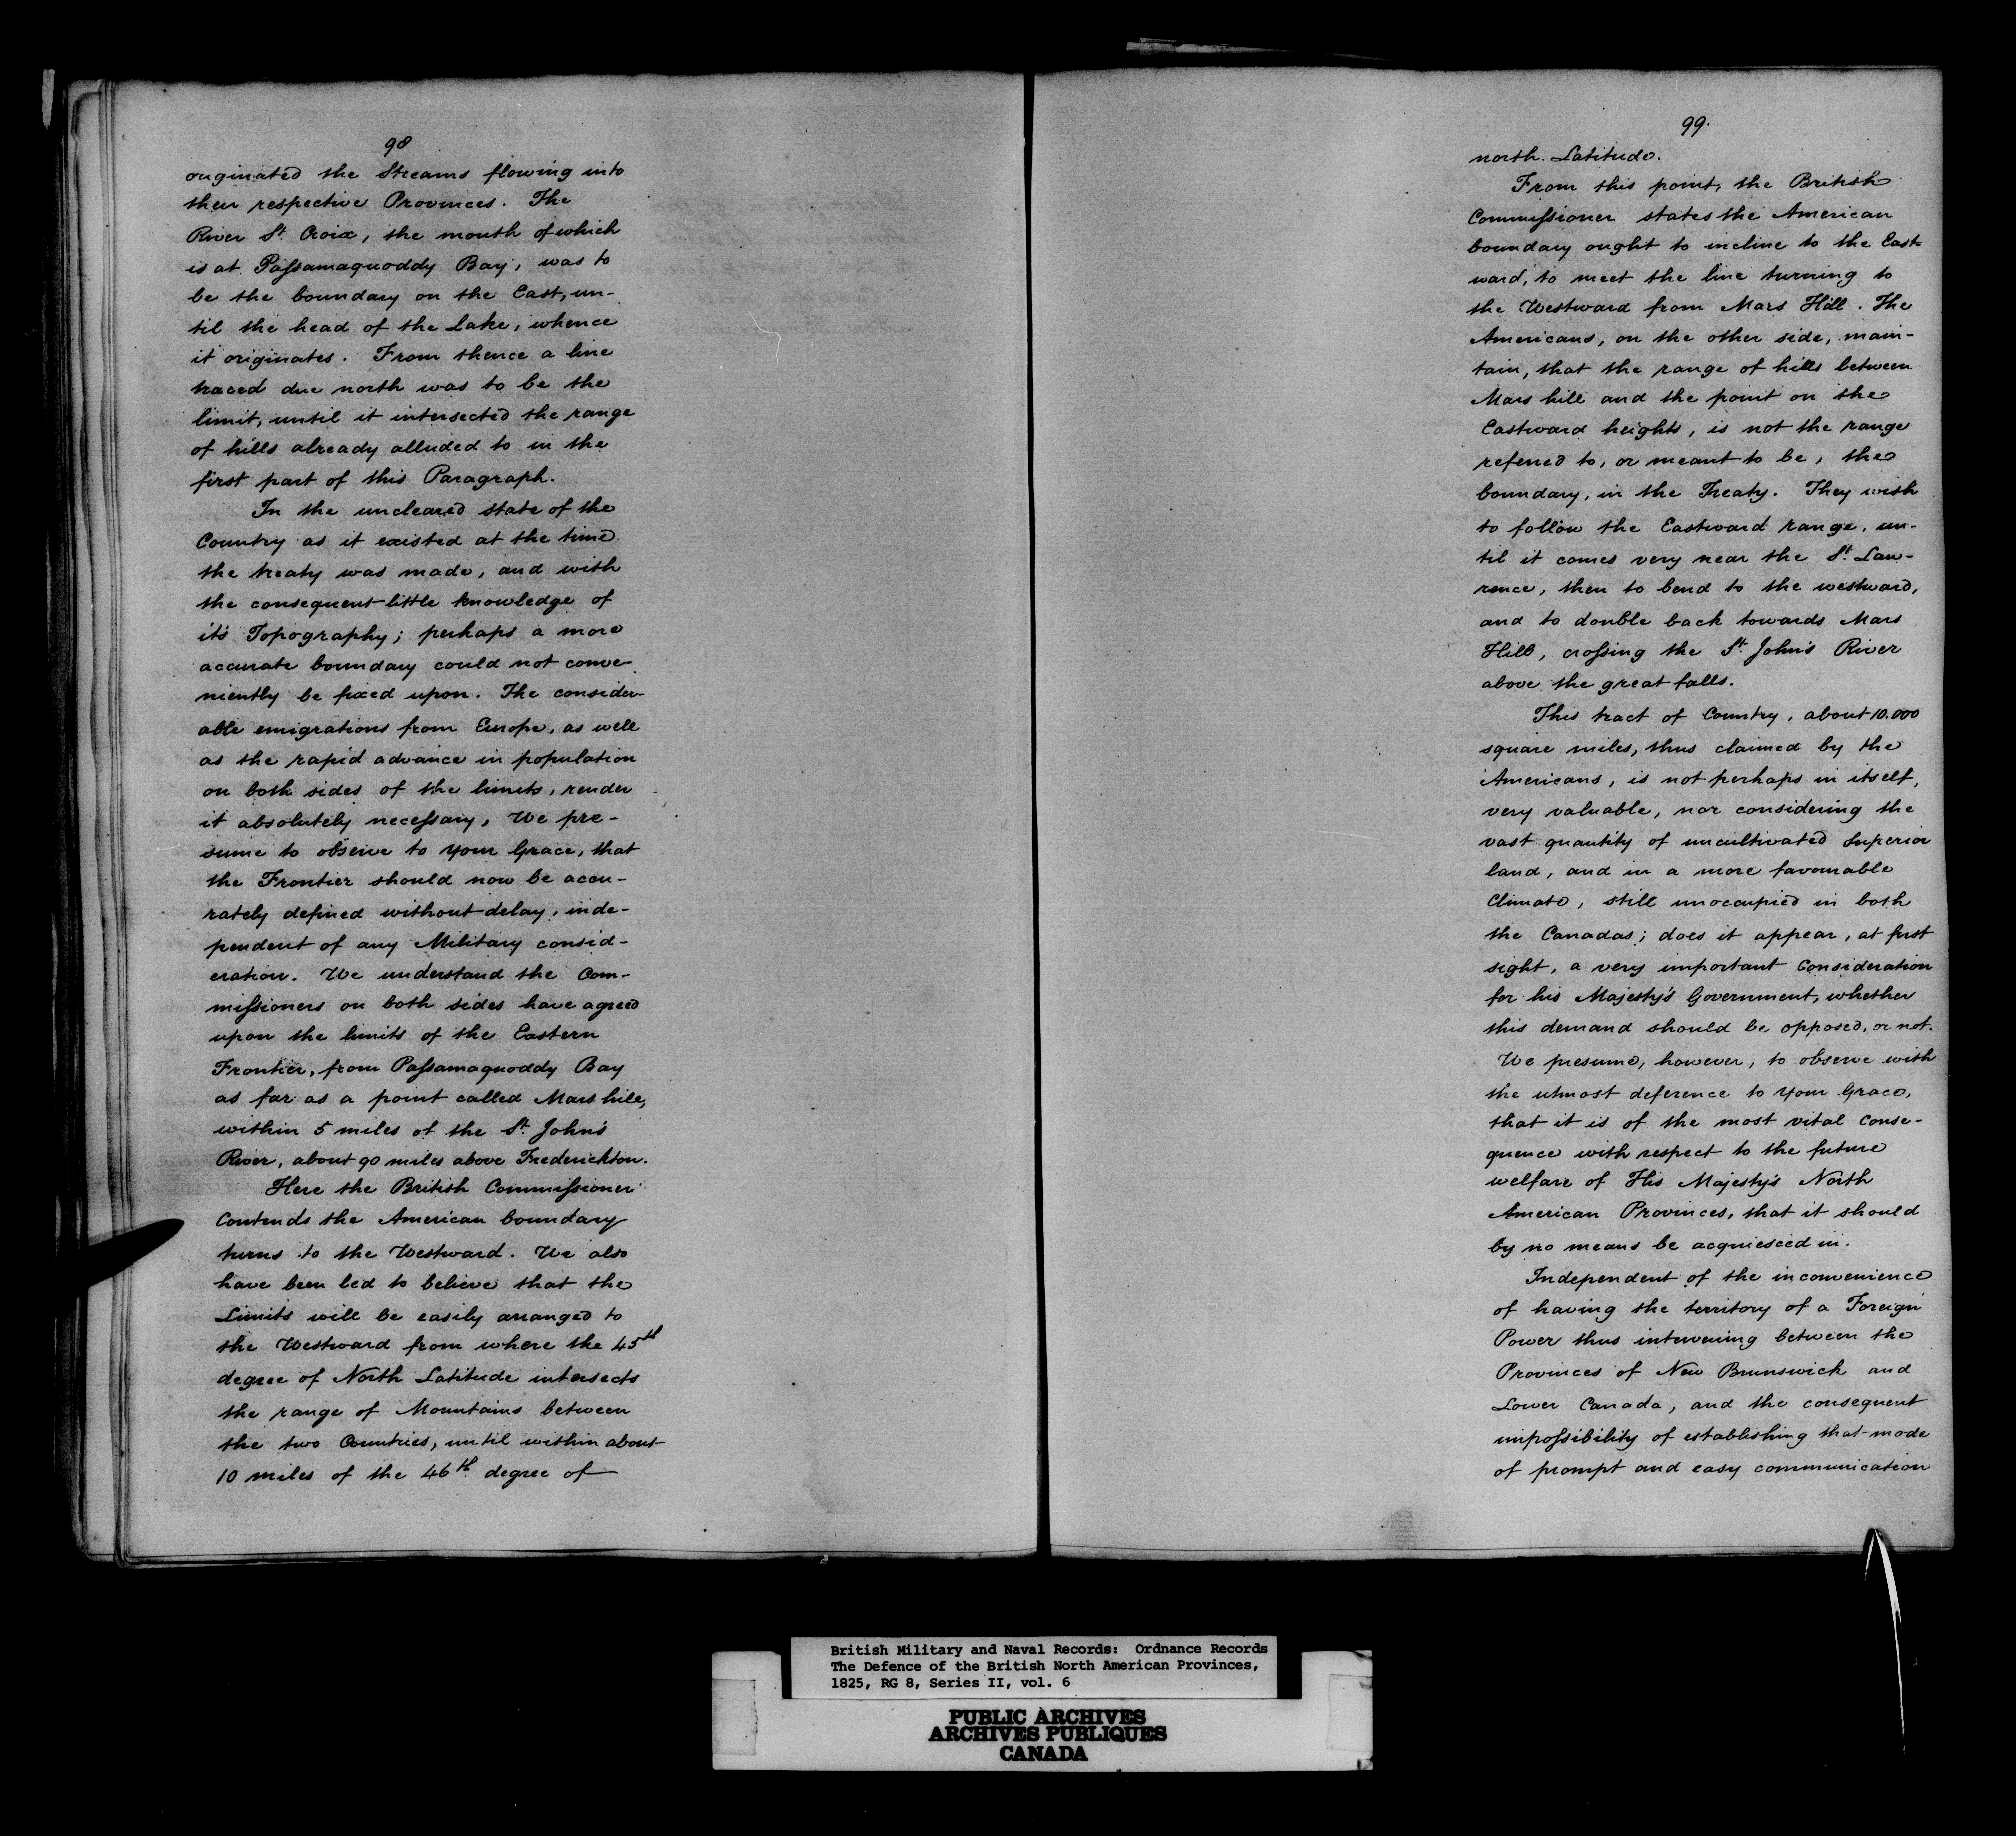 98
originated the Streams flowing into
their respective Provinces. The
River St. Croix, the mouth of which
is at Paſsamaquoddy Bay, was to
be the boundary on the East, un-
til the head of the Lake, whence
it originates. From thence a line
traced due north was to be the
limit, until it intersected the range
of hills already alluded to in the
first part of this Paragraph.
In the uncleared state of the
Country as it existed at the time
the treaty was made, and with
the consequent little knowledge of
it's Topography; perhaps a more
accurate boundary could not conve-
niently be fixed upon. The consider-
able emigrations from Europe, as well
as the rapid advance in population
on both sides of the limits, render
it absolutely neceſsary, We pre-
sume to observe to your Grace, that
the Frontier should now be accu-
rately defined without delay, inde-
pendent of any Military consid-
eration. We understand the Com-
miſsioners on both sides have agreed
upon the limits of the Eastern
Frontier, from Paſsamaquoddy Bay
as far as a point called Mars hill,
within 5 miles of the St. John's
River, about 90 miles above Frederickton.
Here the British Commiſsioner
Contends the American boundary
turns to the Westward. We also
have been led to believe that the
Limits will be easily arranged to
the Westward from where the 45th
degree of North Latitude intersects
the range of Mountains between
the two Countries, until within about
10 miles of the 46th. degree of
99.
north. Latitude.
From this point, the British
Commiſsioner states the American
boundary ought to incline to the East-
ward, to meet the line turning to
the Westward from Mars Hill. The
Americans, on the other side, main-
tain, that the range of hills between
Mars hill and the point on the
Eastward heights, is not the range
referred to, or meant to be, the
boundary, in the Treaty. They wish
to follow the Eastward range, un-
til it comes very near the St. Law-
rence, then to bend to the westward,
and to double back towards Mars
Hill, croſsing the St. John's River
above the great falls.
This tract of Country, about 10.000
square miles, thus claimed by the
Americans, is not perhaps in itself,
very valuable, nor considering the
vast quantity of uncultivated Superior
land, and in a more favourable
Climate, still unoccupied in both
the Canadas; does it appear, at first
sight, a very important Consideration
for his Majesty's Government, whether
this demand should be opposed, or not.
We presume, however, to observe with
the utmost deference to your Grace,
that it is of the most vital Conse-
quence with respect to the future
welfare of His Majesty's North
American Provinces, that it should
by no means be acquiesced in.
Independent of the inconvenience
of having the territory of a Foreign
Power thus intervening between the
Provinces of New Brunswick and
Lower Canada, and the consequent
impoſsibility of establishing that mode
of prompt and easy communication
British Military and Naval Records: Ordnance Records
The Defence of the British North American Provinces,
1825, RG 8, Series II, vol. 6
PUBLIC ARCHIVES
ARCHIVES PUBLIQUES
CANADA